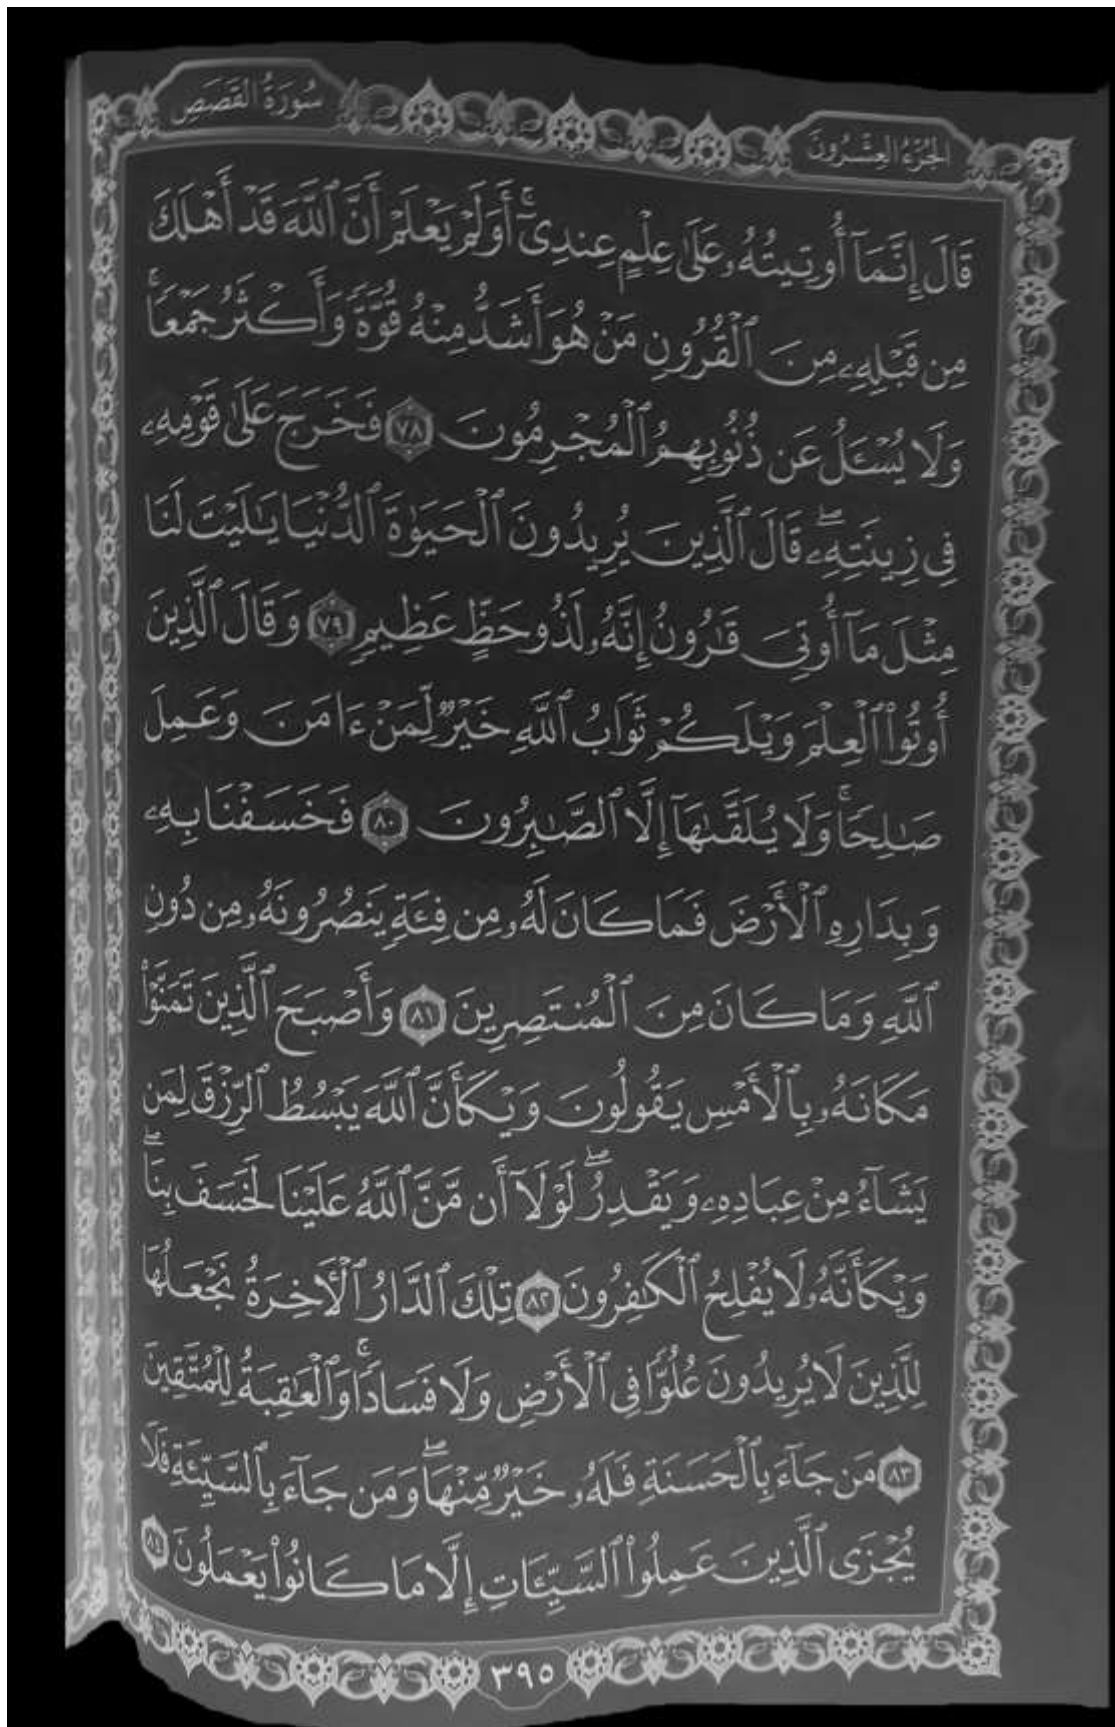 سُورَةُ القَصَصِ
الجُزْءُ العِشْرُونَ
قَالَ إِنَّمَآ أُوتِيتُهُۥ عَلَىٰ عِلْمٍ عِندِىٓ ۚ أَوَلَمْ يَعْلَمْ أَنَّ ٱللَّهَ قَدْ أَهْلَكَ
مِن قَبْلِهِۦ مِنَ ٱلْقُرُونِ مَنْ هُوَ أَشَدُّ مِنْهُ قُوَّةً وَأَكْثَرُ جَمْعًا ۚ
وَلَا يُسْـَٔلُ عَن ذُنُوبِهِمُ ٱلْمُجْرِمُونَ ٧٨ فَخَرَجَ عَلَىٰ قَوْمِهِۦ
فِى زِينَتِهِۦ ۖ قَالَ ٱلَّذِينَ يُرِيدُونَ ٱلْحَيَوٰةَ ٱلدُّنْيَا يَـٰلَيْتَ لَنَا
مِثْلَ مَآ أُوتِىَ قَـٰرُونُ إِنَّهُۥ لَذُو حَظٍّ عَظِيمٍ ٧٩ وَقَالَ ٱلَّذِينَ
أُوتُوا۟ ٱلْعِلْمَ وَيْلَكُمْ ثَوَابُ ٱللَّهِ خَيْرٌ لِّمَنْ ءَامَنَ وَعَمِلَ
صَـٰلِحًا ۚ وَلَا يُلَقَّىٰهَآ إِلَّا ٱلصَّـٰبِرُونَ ٨٠ فَخَسَفْنَا بِهِۦ
وَبِدَارِهِ ٱلْأَرْضَ فَمَا كَانَ لَهُۥ مِن فِئَةٍ يَنصُرُونَهُۥ مِن دُونِ
ٱللَّهِ وَمَا كَانَ مِنَ ٱلْمُنتَصِرِينَ ٨١ وَأَصْبَحَ ٱلَّذِينَ تَمَنَّوْا۟
مَكَانَهُۥ بِٱلْأَمْسِ يَقُولُونَ وَيْكَأَنَّ ٱللَّهَ يَبْسُطُ ٱلرِّزْقَ لِمَن
يَشَآءُ مِنْ عِبَادِهِۦ وَيَقْدِرُ ۖ لَوْلَآ أَن مَّنَّ ٱللَّهُ عَلَيْنَا لَخَسَفَ بِنَا ۖ
وَيْكَأَنَّهُۥ لَا يُفْلِحُ ٱلْكَـٰفِرُونَ ٨٢ تِلْكَ ٱلدَّارُ ٱلْـَٔاخِرَةُ نَجْعَلُهَا
لِلَّذِينَ لَا يُرِيدُونَ عُلُوًّا فِى ٱلْأَرْضِ وَلَا فَسَادًا ۚ وَٱلْعَـٰقِبَةُ لِلْمُتَّقِينَ
٨٣ مَن جَآءَ بِٱلْحَسَنَةِ فَلَهُۥ خَيْرٌ مِّنْهَا ۖ وَمَن جَآءَ بِٱلسَّيِّئَةِ فَلَا
يُجْزَى ٱلَّذِينَ عَمِلُوا۟ ٱلسَّيِّـَٔاتِ إِلَّا مَا كَانُوا۟ يَعْمَلُونَ ٨٤
٣٩٥